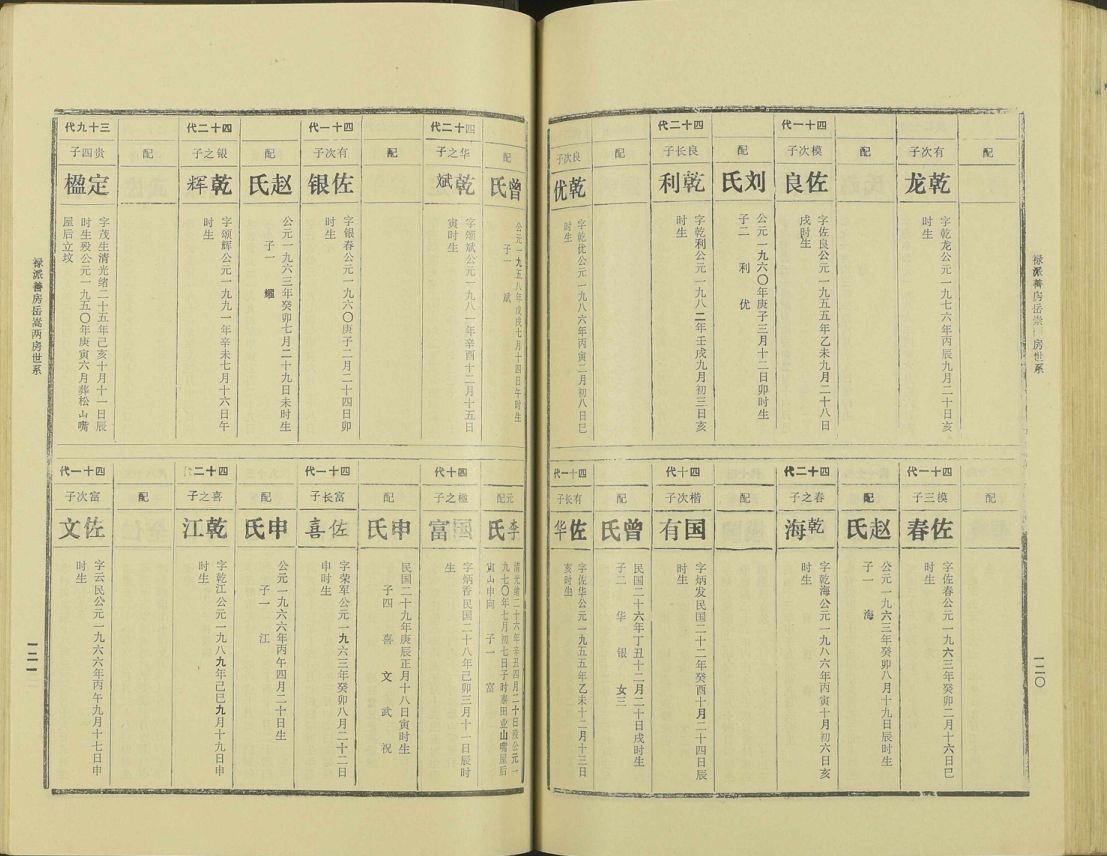 禄派善房岳
房世系
一二〇
配
有次子
乾龙
字乾龙公元一九七六年丙辰九月二十日亥
时生
配
四十一代
模次子
佐良
字佐良公元一九五五年乙未九月二十八日
戌时生
配
刘氏
公元一九六〇年庚子三月十二日卯时生
子二 利 优
四十二代
良长子
乾利
字乾利公元一九八二年壬戌九月初三日亥
时生
配
良次子
乾优
字乾优公元一九八六年丙寅二月初八日巳
时生
配
四十一代
模三子
佐春
字佐春公元一九六三年癸卯二月十六日巳
时生
配
赵氏
公元一九六三年癸卯八月十九日辰时生
子一 海
四十二代
春之子
乾海
字乾海公元一九八六年丙寅十月初六日亥
时生
配
四十代
楷次子
国有
字炳发民国二十二年癸酉十月二十四日辰
时生
配
曾氏
民国二十六年丁丑十二月二十日戌时生
子二 华 银 女三
四十一代
有长子
佐华
字佐华公元一九五五年乙未十二月十三日
亥时生
配
曾氏
公元一九五八年戊戌七月十四日午时生
子一 斌
四十二代
华之子
乾斌
字颂斌公元一九八一年辛酉十二月十五日
寅时生
配
四十一代
有次子
佐银
字银春公元一九六〇庚子二月二十四日卯
时生
配
赵氏
公元一九六三年癸卯七月二十九日未时生
子一 耀
四十二代
银之子
乾辉
字颂辉公元一九九一年辛未七月十六日午
时生
配
三十九代
贵四子
定楹
字茂生清光绪二十五年己亥十月十一日辰
时生殁公元一九五〇年庚寅六月葬松山嘴
屋后立坟
元配
李氏
清光绪二十六年辛丑四月二十日殁公元一
九七〇年七月初七日子时寨田业山嘴屋后
寅山申向 子一 富
四十代
楹之子
国富
字炳香民国二十八年己卯三月十一日辰时
生
配
申氏
民国二十九年庚辰正月十八日寅时生
子四 喜 文 武 祝
四十一代
富长子
佐喜
字荣军公元一九六三年癸卯八月二十二日
申时生
配
申氏
公元一九六六年丙午四月二十日生
子一 江
四十二代
喜之子
乾江
字乾江公元一九八九年己巳九月十九日申
时生
配
四十一代
富次子
佐文
字云民公元一九六六年丙午九月十七日申
时生
禄派善房岳嵩两房世系
一二一